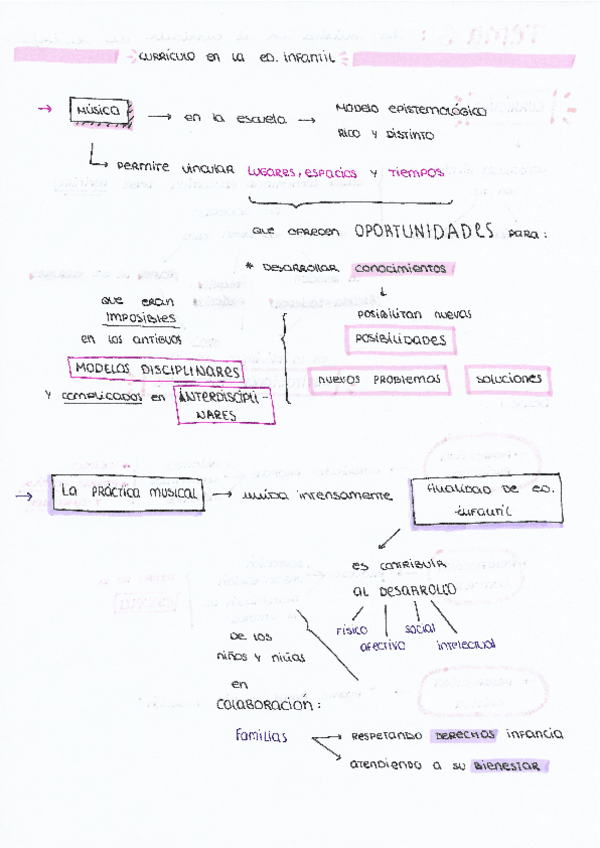 CURRÍCULO EN LA ED. INFANTIL
→ MÚSICA → EN LA ESCUELA → MODELO EPISTEMOLÓGICO
RICO Y DISTINTO
PERMITE VINCULAR LUGARES, ESPACIOS Y TIEMPOS
QUE OFRECEN OPORTUNIDADES PARA:
* DESARROLLAR CONOCIMIENTOS
↓
POSIBILITAN NUEVAS
POSIBILIDADES
NUEVOS PROBLEMAS SOLUCIONES
QUE ERAN
IMPOSIBLES
EN LOS ANTIGUOS
MODELOS DISCIPLINARES
Y COMPLICADOS EN INTERDISCIPLI-
NARES
→ LA PRÁCTICA MUSICAL → UNIDA INTENSAMENTE FINALIDAD DE ED.
INFANTIL
ES CONTRIBUIR
AL DESARROLLO
FÍSICO AFECTIVO SOCIAL INTELECTUAL
DE LOS
NIÑOS Y NIÑAS
EN
COLABORACIÓN:
FAMILIAS → RESPETANDO DERECHOS INFANCIA
→ ATENDIENDO A SU BIENESTAR